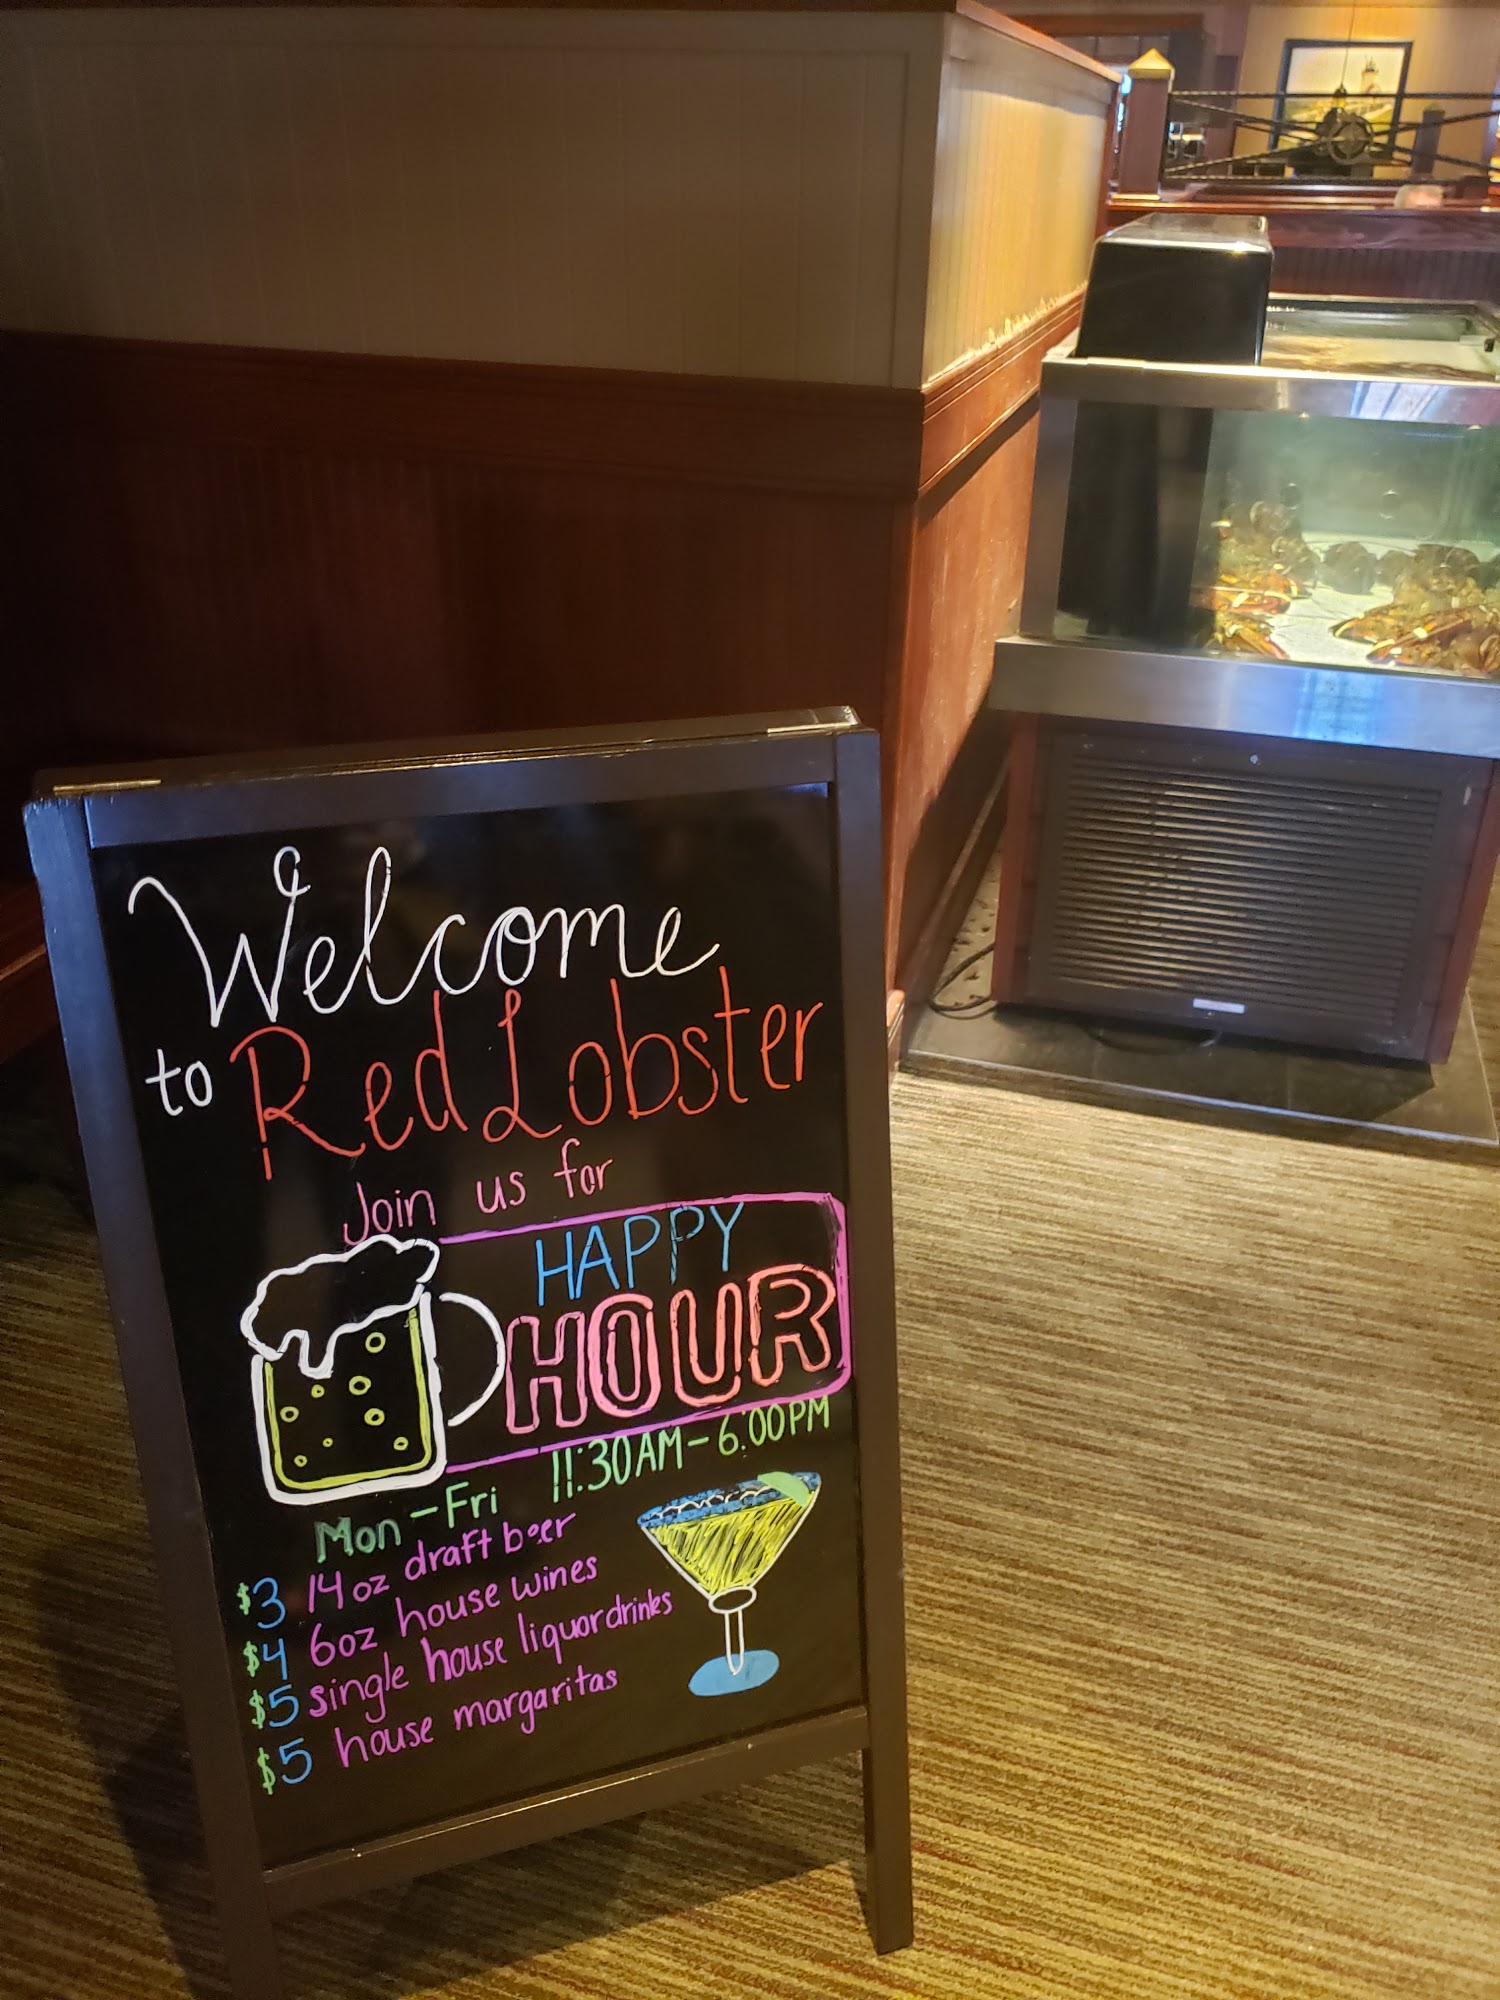 Welcome
to Red Lobster
Join us for
HAPPY
HOUR
Mon-Fri 11:30AM-6:00PM
$3 14oz draft beer
$4 6oz house wines
$5 single house liquor drinks
$5 house margaritas